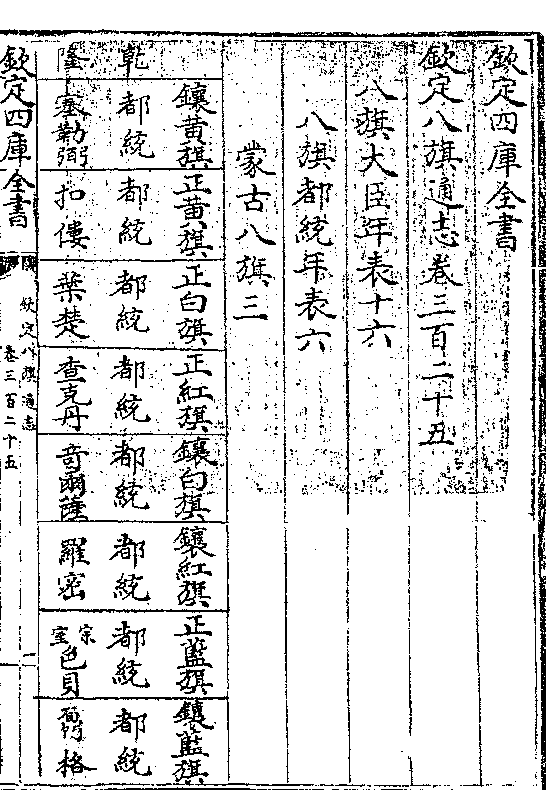 欽定四庫全書
欽定八旗通志卷三百二十五
八旗大臣年表十六
八旗都統年表六
蒙古八旗三
鑲黃旗 正黃旗 正白旗 正紅旗 鑲白旗 鑲紅旗 正藍旗 鑲藍旗
乾 都統 都統 都統 都統 都統 都統 都統 都統
隆 塞勒弼 扣僂 葉楚 查克丹 奇爾薩 羅密 宗室色貝 格
欽定四庫全書
欽定八旗通志
卷三百二十五
一